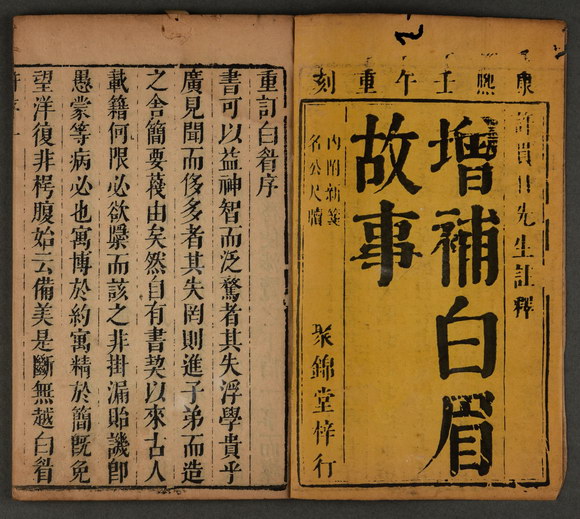 康熙壬午重刻
許貫日先生註釋
增補白眉
故事
內附新箋
名公尺牘
聚錦堂梓行
重訂白睂序
書可以益神智而泛騖者其失浮學貴乎
廣見聞而侈多者其失罔則進子弟而造
之舍簡要蔑由矣然自有書契以來古人
載籍何限必欲槩而該之非掛漏貽譏卽
愚蒙等病必也寓博於約寓精於簡旣免
望洋復非枵腹始云備美是斷無越白睂